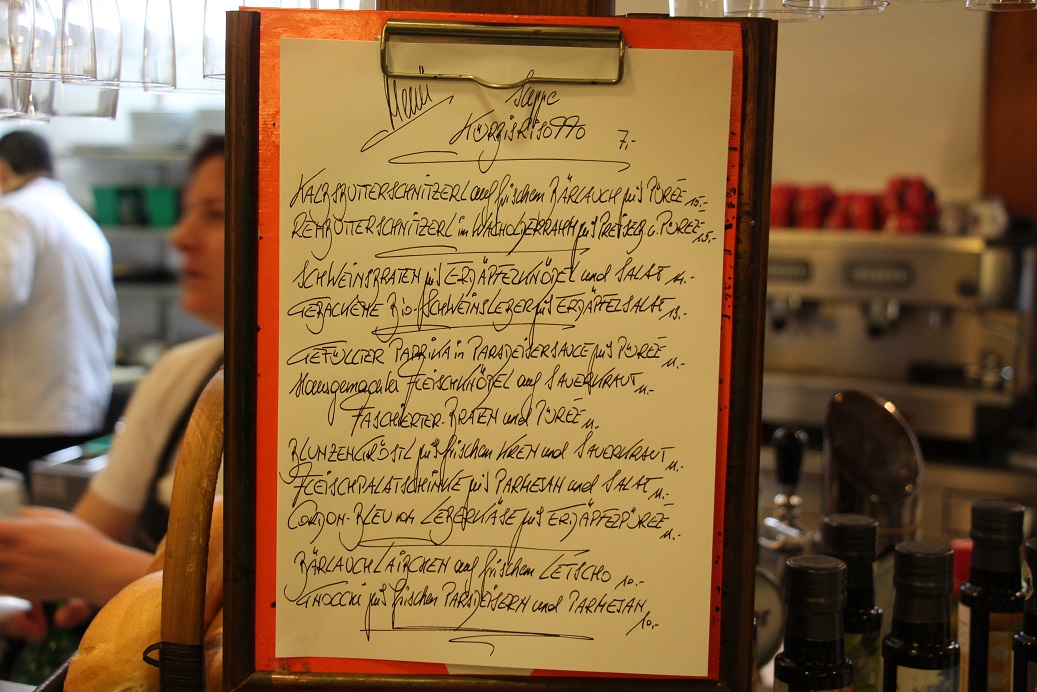 Menü Suppe
KÜRBISRISOTTO 7,-
KALBSBUTTERSCHNITZERL auf frischem BÄRLAUCH mit PÜREE 15,-
REHBUTTERSCHNITZERL in WACHOLDERRAHM mit PREISELB u. PÜREE 15,-
SCHWEINSBRATEN mit ERDÄPFELKNÖDEL und SALAT 11,-
GEBACKENE BIO-SCHWEINSLEBER mit ERDÄPFELSALAT 13,-
GEFÜLLTER PAPRIKA in PARADEISERSAUCE mit PÜREE 11,-
Hausgemachte FLEISCHKNÖDEL auf SAUERKRAUT 11,-
FASCHIERTER-BRATEN und PÜREE 11,-
BLUNZENGRÖSTL mit frischem KREN und SAUERKRAUT 11,-
FLEISCHPALATSCHINKE mit PARMESAN und SALAT 11,-
CORDON-BLEU von LEBERKÄSE mit ERDÄPFELPÜREE 11,-
BÄRLAUCHLAIBCHEN auf frischem LETSCHO 10,-
GNOCCHI mit frischen PARADEISERN und PARMESAN 10,-